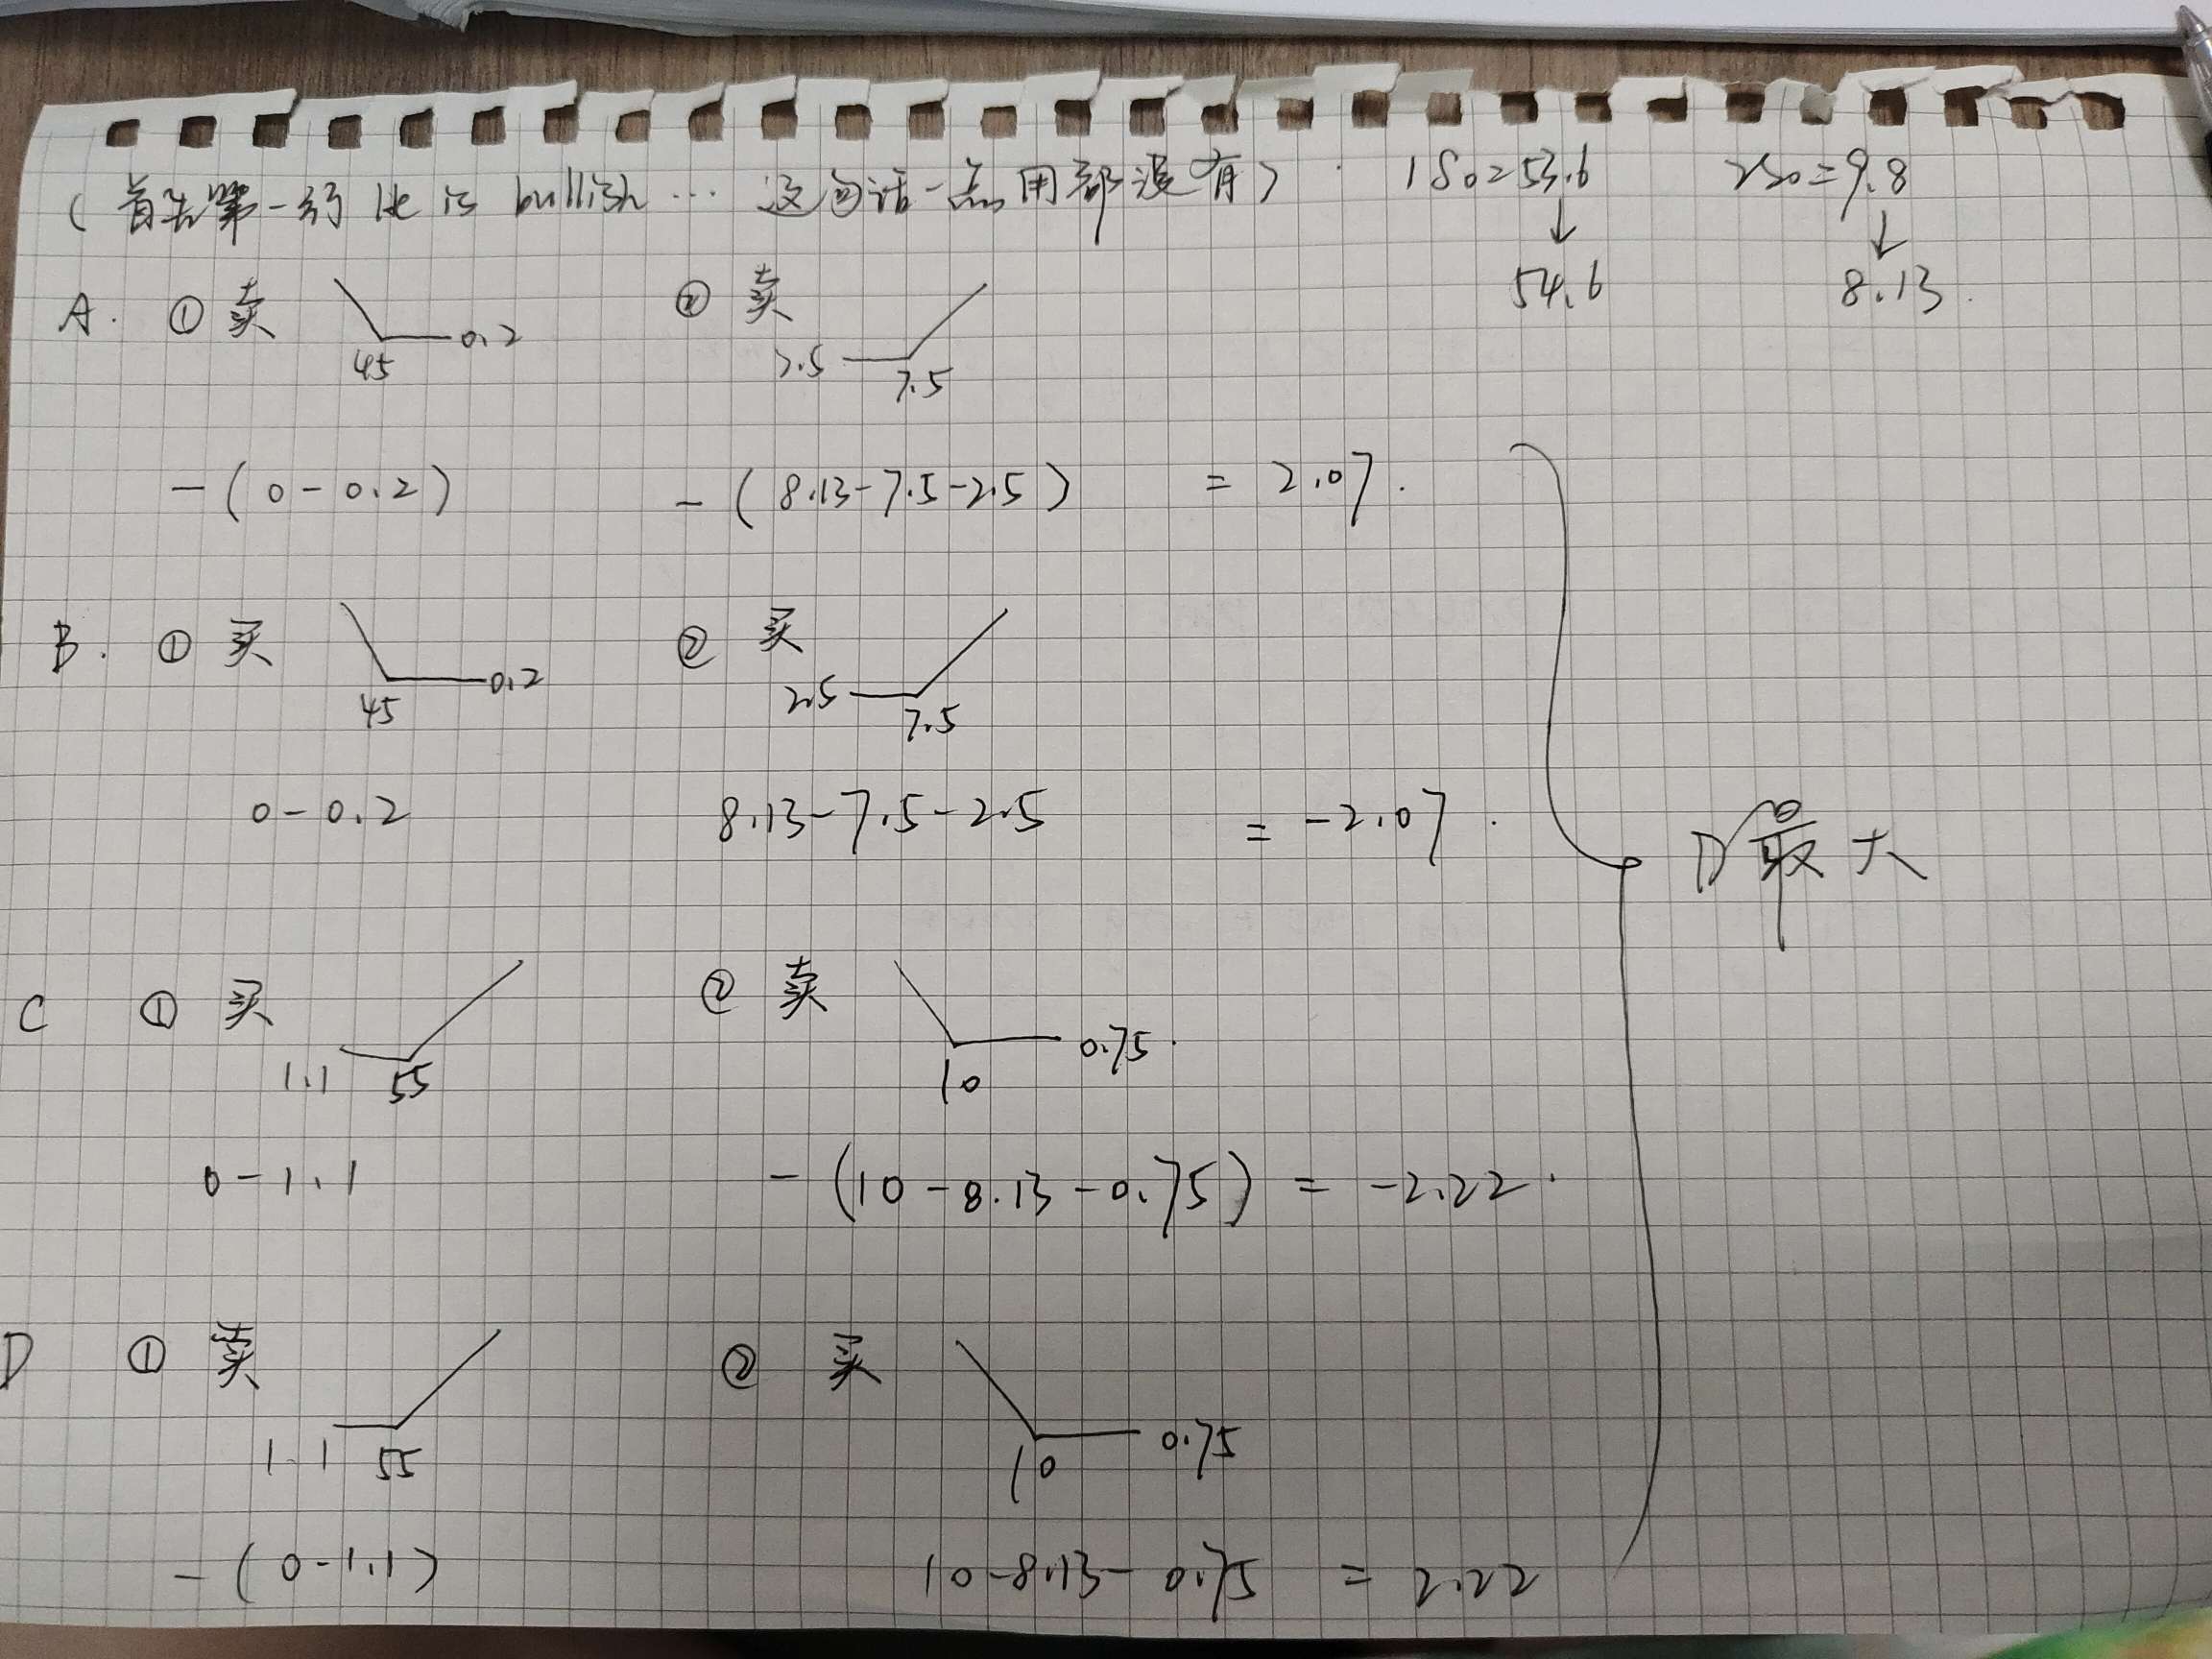 (首先第一句 He is bullish … 这句话一点用都没有) 1S0=53.6 2S0=9.8
↓ ↓
54.6 8.13
A. ① 卖 45 0.2 ② 卖 2.5 7.5
-(0-0.2) -(8.13-7.5-2.5) = 2.07.
B. ① 买 45 0.2 ② 买 2.5 7.5
0-0.2 8.13-7.5-2.5 = -2.07.
D最大
C ① 买 1.1 55 ② 卖 10 0.75.
0-1.1 -(10-8.13-0.75) = -2.22.
D ① 卖 1.1 55 ② 买 10 0.75
-(0-1.1) 10-8.13-0.75 = 2.22